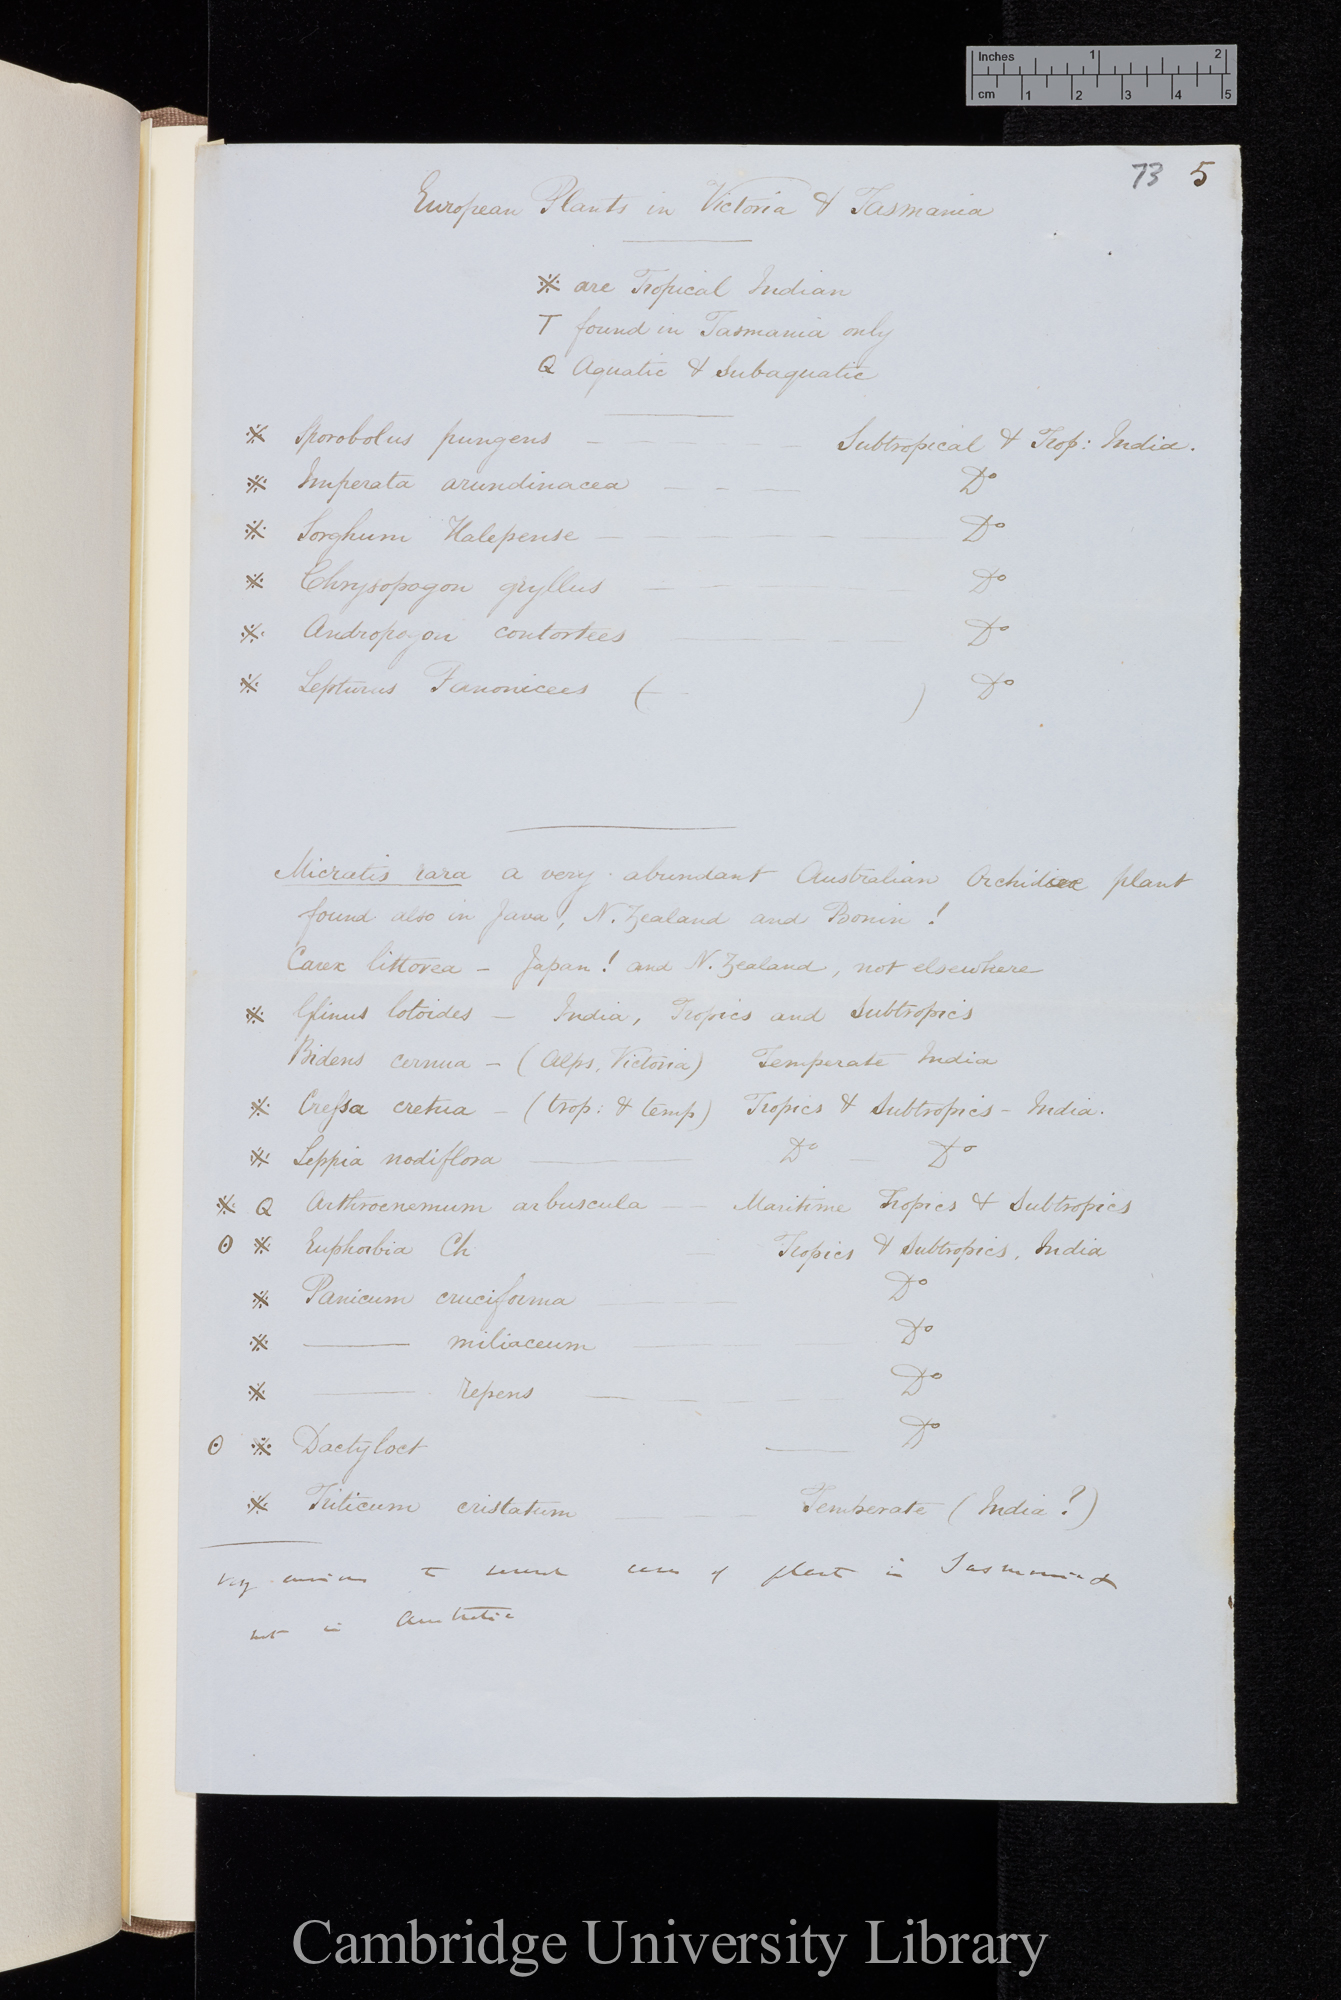 Inches 1 2
cm 1 2 3 4 5
73 5
European Plants in Victoria & Tasmania
※ are Tropical Indian
T found in Tasmania only
Q Aquatic & Subaquatic
※ Sporobolus pungens — — — — — Subtropical & Trop: India.
※ Imperata arundinacea — - — Do
※ Sorghum Halepense — — — — — — Do
※ Chrysopogon gryllus — — — — Do
※ Andropogon contortus — — — — Do
※ Lepturus Panonicus ( — - ) Do
Micratis rara a very abundant Australian Orchideae plant
found also in Java, N. Zealand and Bonin!
Carex littorea - Japan! and N. Zealand, not elsewhere
※ Glinus lotoides — India, Tropics and Subtropics
Bidens cernua - (Alps, Victoria) Temperate India
※ Cressa cretica - (trop: & temp) Tropics & Subtropics - India.
※ Leppia nodiflora ——— Do — Do
※ Q Arthrocnemum arbuscula — — Maritime Tropics & Subtropics
⊙ ※ Euphorbia Ch — Tropics & Subtropics, India
※ Panicum cruciforma — — — Do
※ ——— miliaceum — — — Do
※ ——— repens — — — — Do
⊙ ※ Dactyloct —— Do
※ Triticum cristatum — — — Temperate (India?)
very curious to search case of plant in Tasmania &
not in Australia
Cambridge University Library